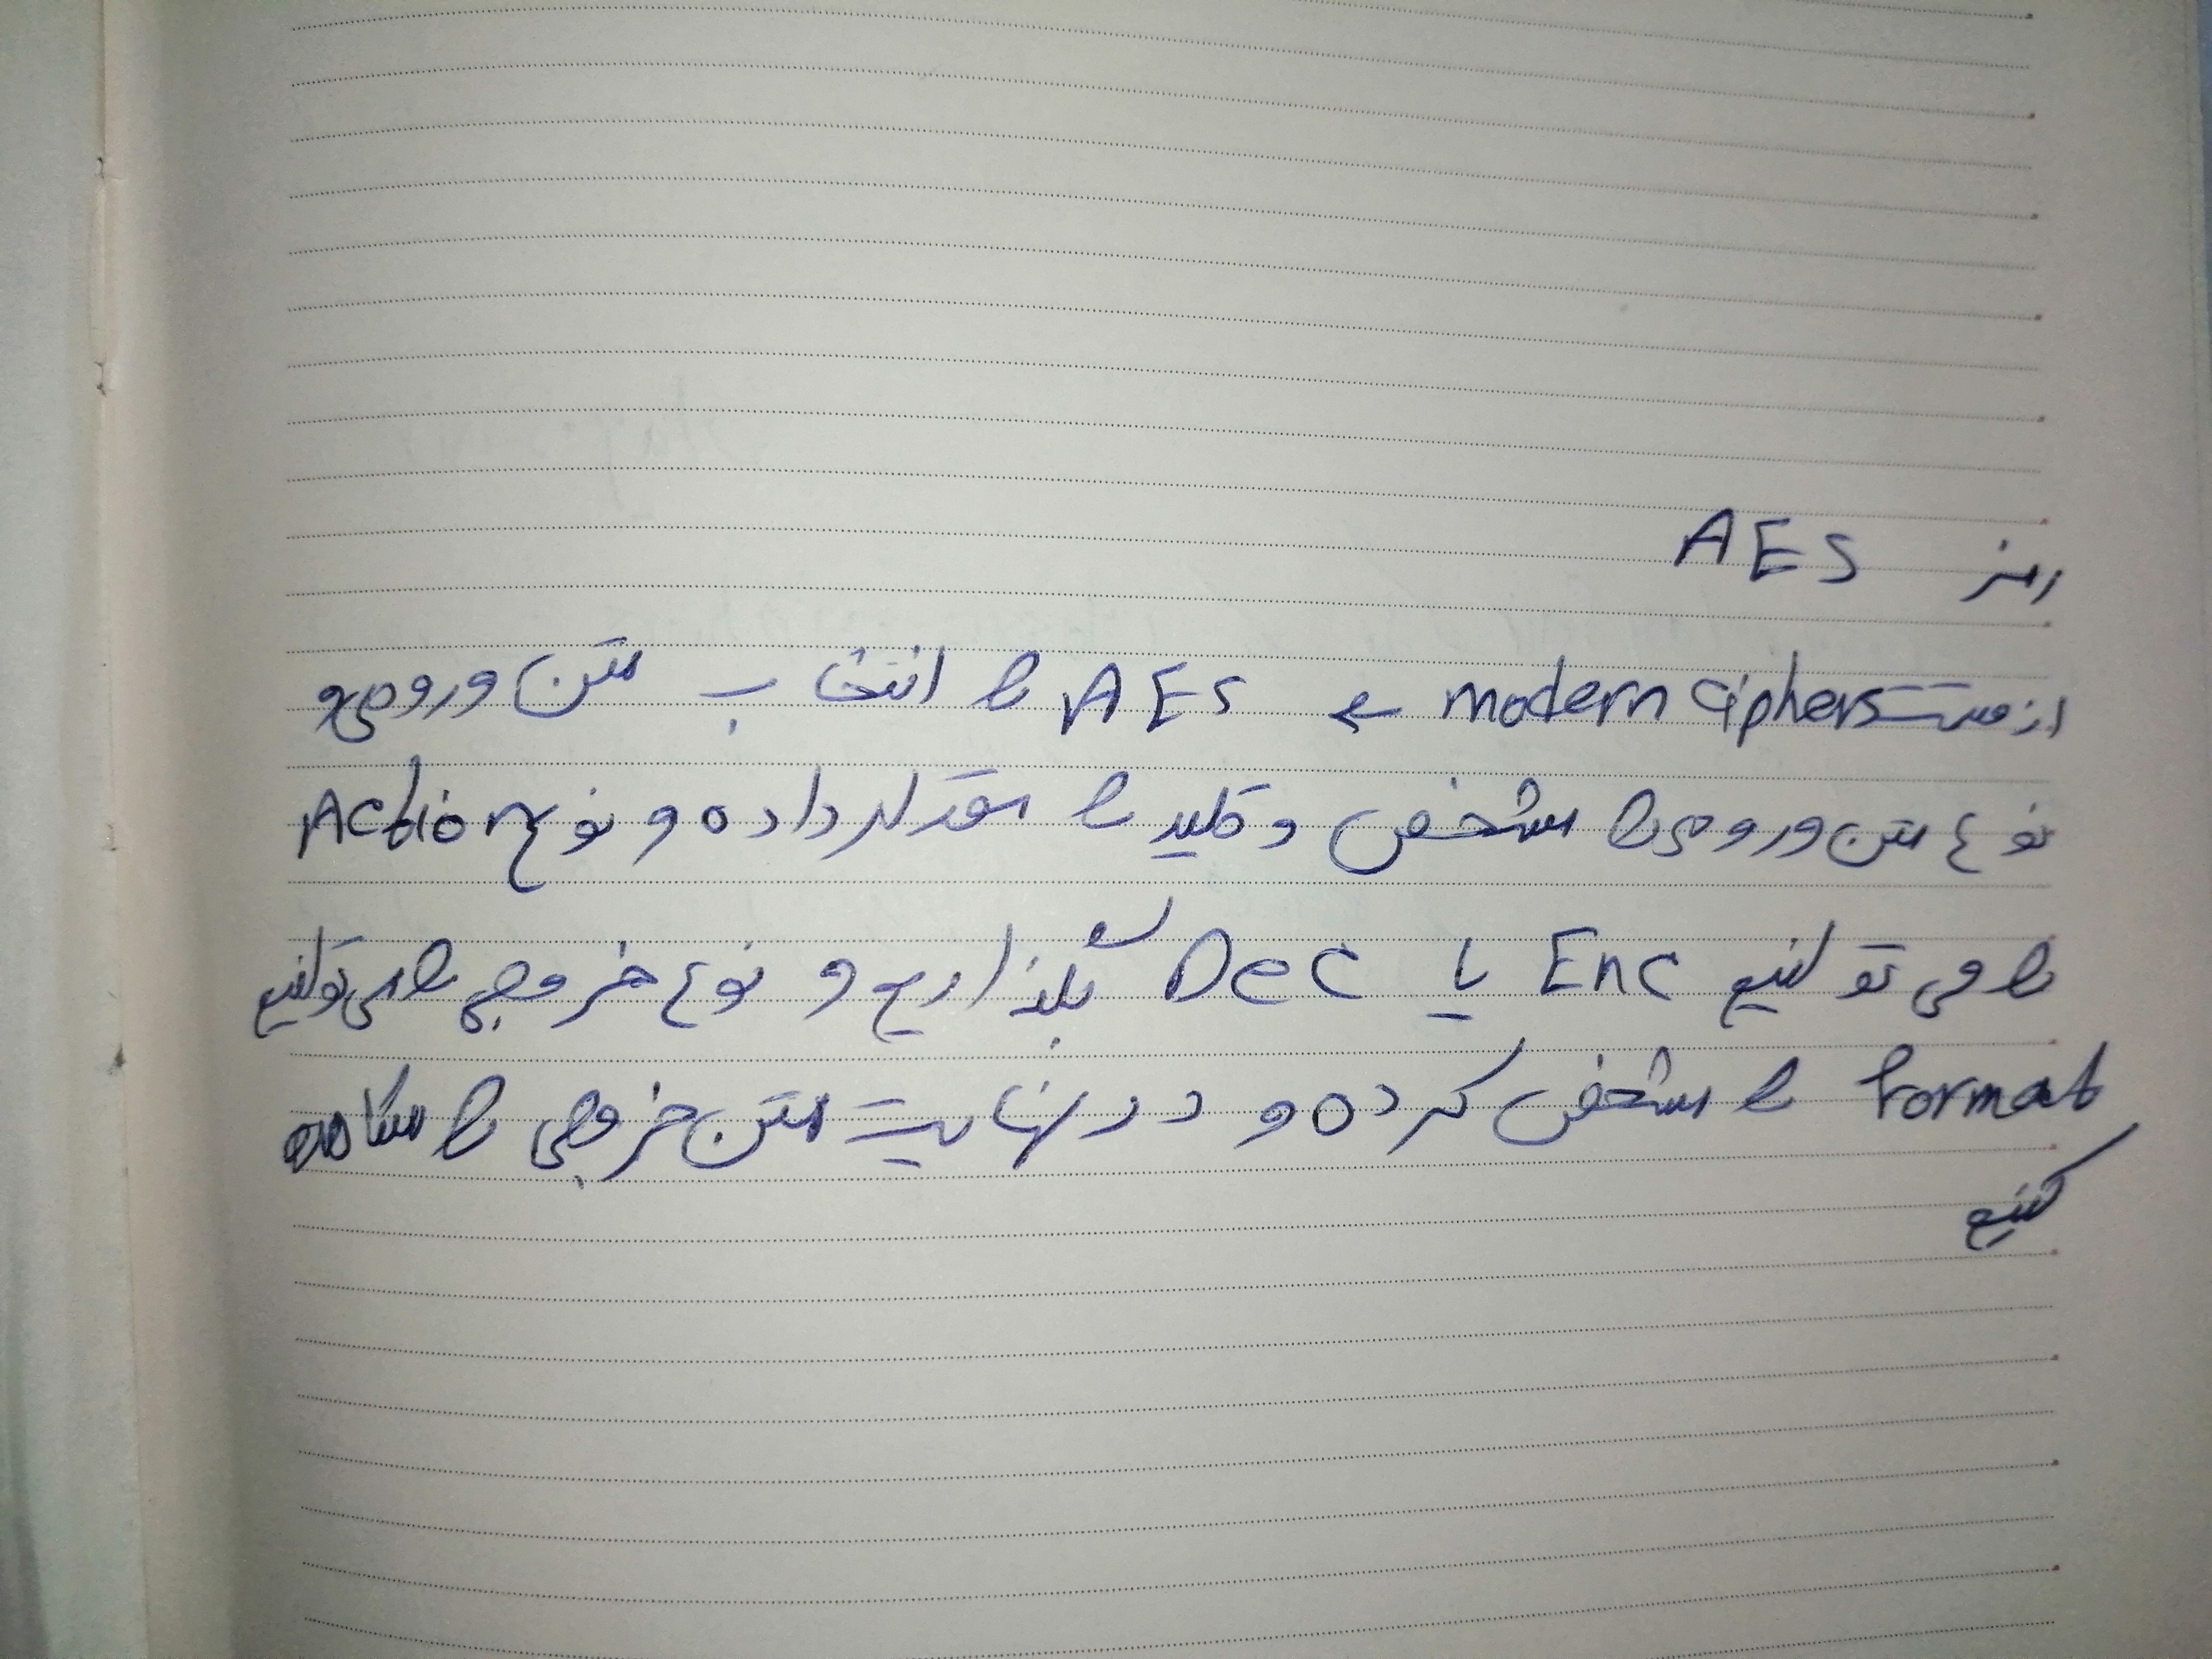 رمز AES
از قسمت modern ciphers ← AES را انتخاب متن ورودی و
نوع متن ورودی را مشخص و کلید را مقدار داده و نوع Action
را می توانیم Enc یا Dec بگذاریم و نوع خروجی را می توانیم
format را مشخص کرده و در نهایت متن خروجی را مشاهده
کنیم